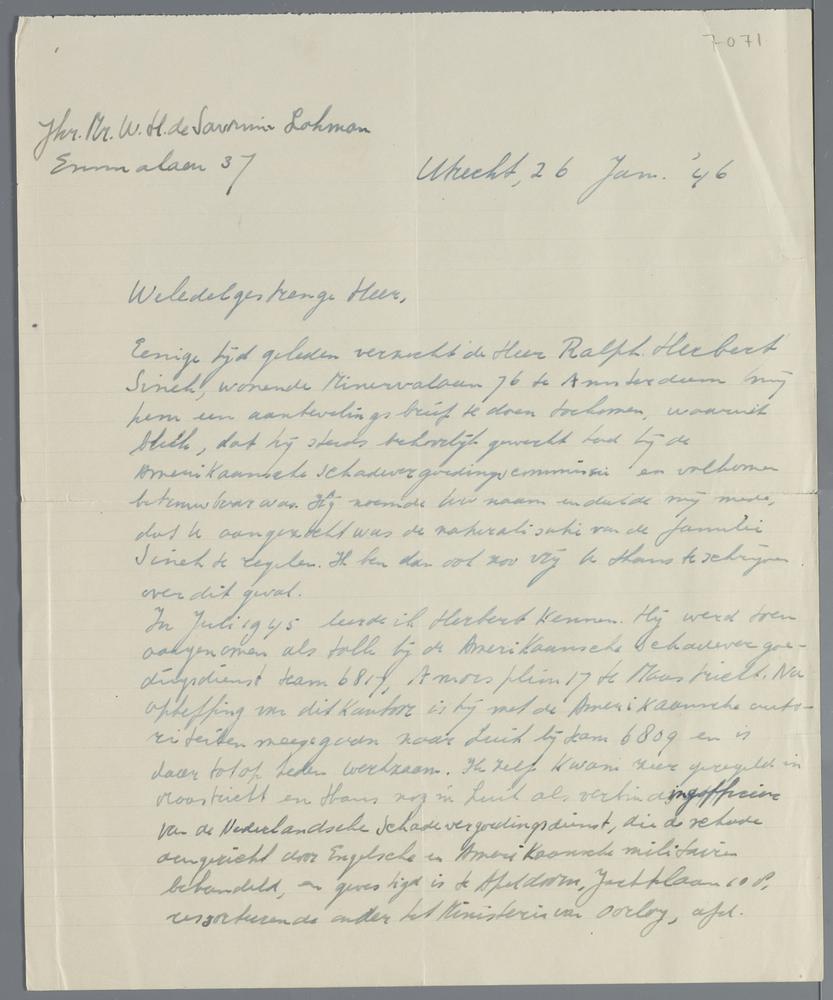 7071
Jhr. Mr. W. H. de Savornin Lohman
Emmalaan 37
Utrecht, 26 Jan. '46
Weledelgestrenge Heer,
Eenige tijd geleden verzocht de Heer Ralph Herbert
Sinek, wonende Minervalaan 76 te Amsterdam mij
hem een aanbevelingsbrief te doen toekomen, waaruit
bleek, dat hij steeds behoorlijk gewerkt had bij de
Amerikaansche schadevergoedingscommissie en volkomen
betrouwbaar was. Hij noemde Uw naam en deelde mij mede,
dat U aangezocht was de naturalisatie van de familie
Sinek te regelen. Ik ben dan ook zoo vrij U thans te schrijven
over dit geval.
In Juli 1945 leerde ik Herbert kennen. Hij werd toen
aangenomen als tolk bij de Amerikaansche schadevergoe-
dingsdienst team 6819, Amorsplein 17 te Maastricht. Na
opheffing van dit kantoor is hij met de Amerikaansche auto-
riteiten meegegaan naar Luik bij team 6809 en is
daar tot op heden werkzaam. Ik zelf kwam zeer geregeld in
Maastricht en thans nog in Luik als verbindingsofficier
van de Nederlandsche Schadevergoedingsdienst, die de schade
aangericht door Engelsche en Amerikaansche militairen
behandeld, en gevestigd is te Apeldoorn, Jachtlaan 108,
ressorteerende onder het Ministerie van Oorlog, afd.